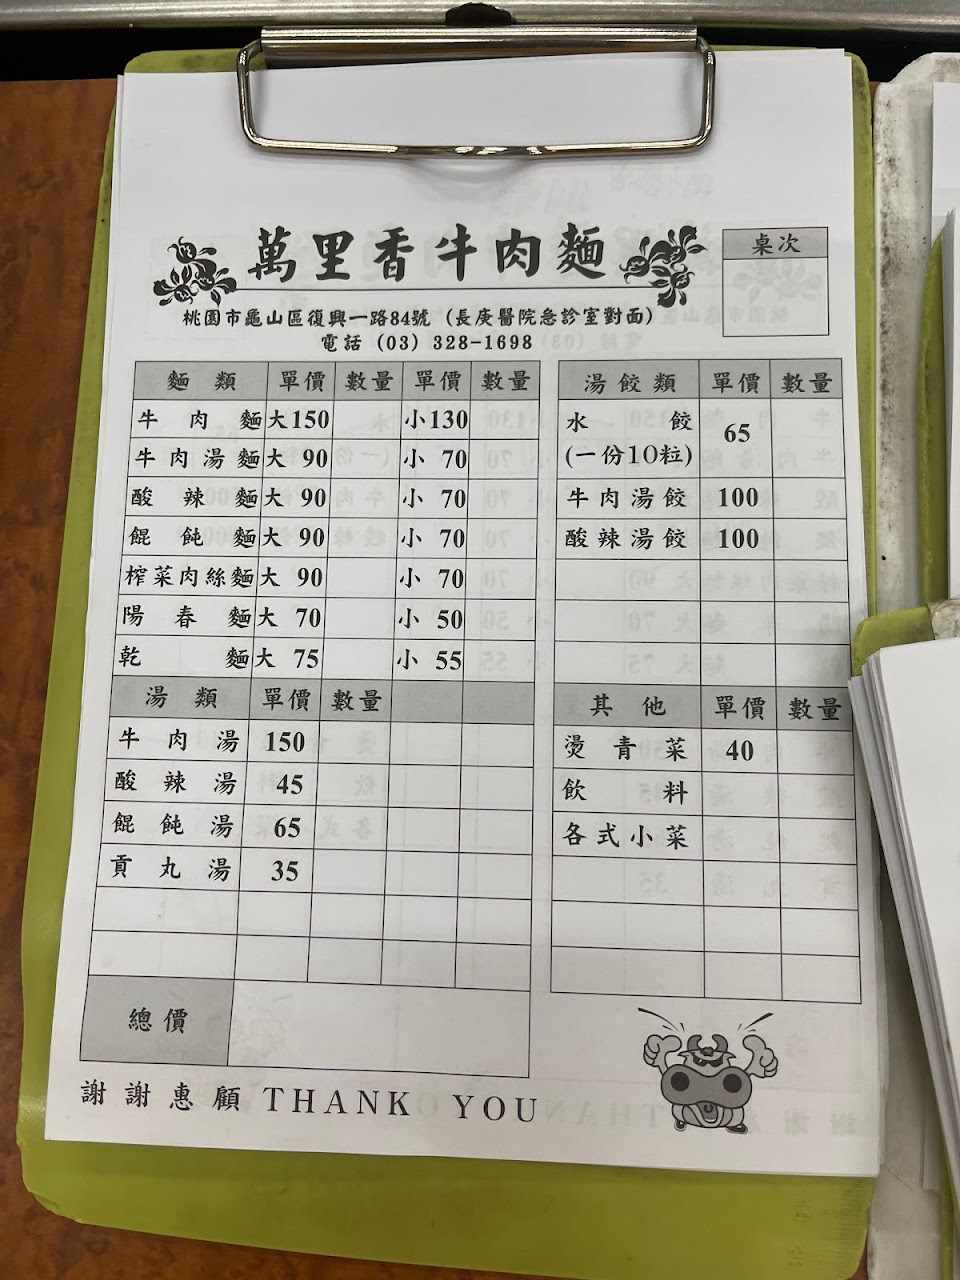 萬里香牛肉麵
桌次
桃園市龜山區復興一路84號 (長庚醫院急診室對面)
電話 (03) 328-1698
麵類 單價 數量 單價 數量
牛肉麵 大150 小130
牛肉湯麵 大 90 小 70
酸辣麵 大 90 小 70
餛飩麵 大 90 小 70
榨菜肉絲麵 大 90 小 70
陽春麵 大 70 小 50
乾麵 大 75 小 55
湯類 單價 數量
牛肉湯 150
酸辣湯 45
餛飩湯 65
貢丸湯 35
總價
湯餃類 單價 數量
水餃 65
(一份10粒)
牛肉湯餃 100
酸辣湯餃 100
其他 單價 數量
燙青菜 40
飲料
各式小菜
謝謝惠顧 THANK YOU